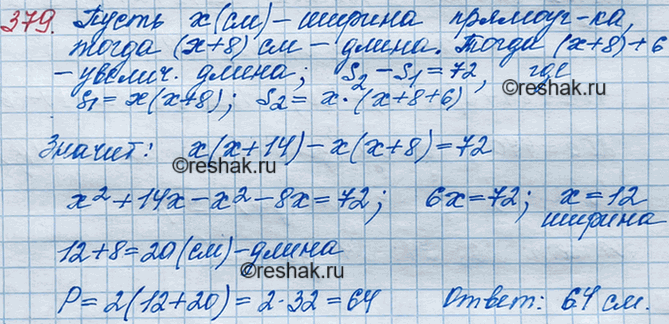 379. Пусть x(см) – ширина прямоуг-ка,
тогда (x+8) см – длина. Тогда (x+8)+6
– увелич. длина; S₂ – S₁ = 72, где
S₁ = x(x+8); S₂ = x·(x+8+6)
©reshak.ru
©reshak.ru
Значит: x(x+14) – x(x+8) = 72
©reshak.ru
x² + 14x – x² – 8x = 72; 6x = 72; x = 12
ширина
12 + 8 = 20 (см) – длина
©reshak.ru
©reshak.ru
P = 2(12+20) = 2·32 = 64 Ответ: 64 см.